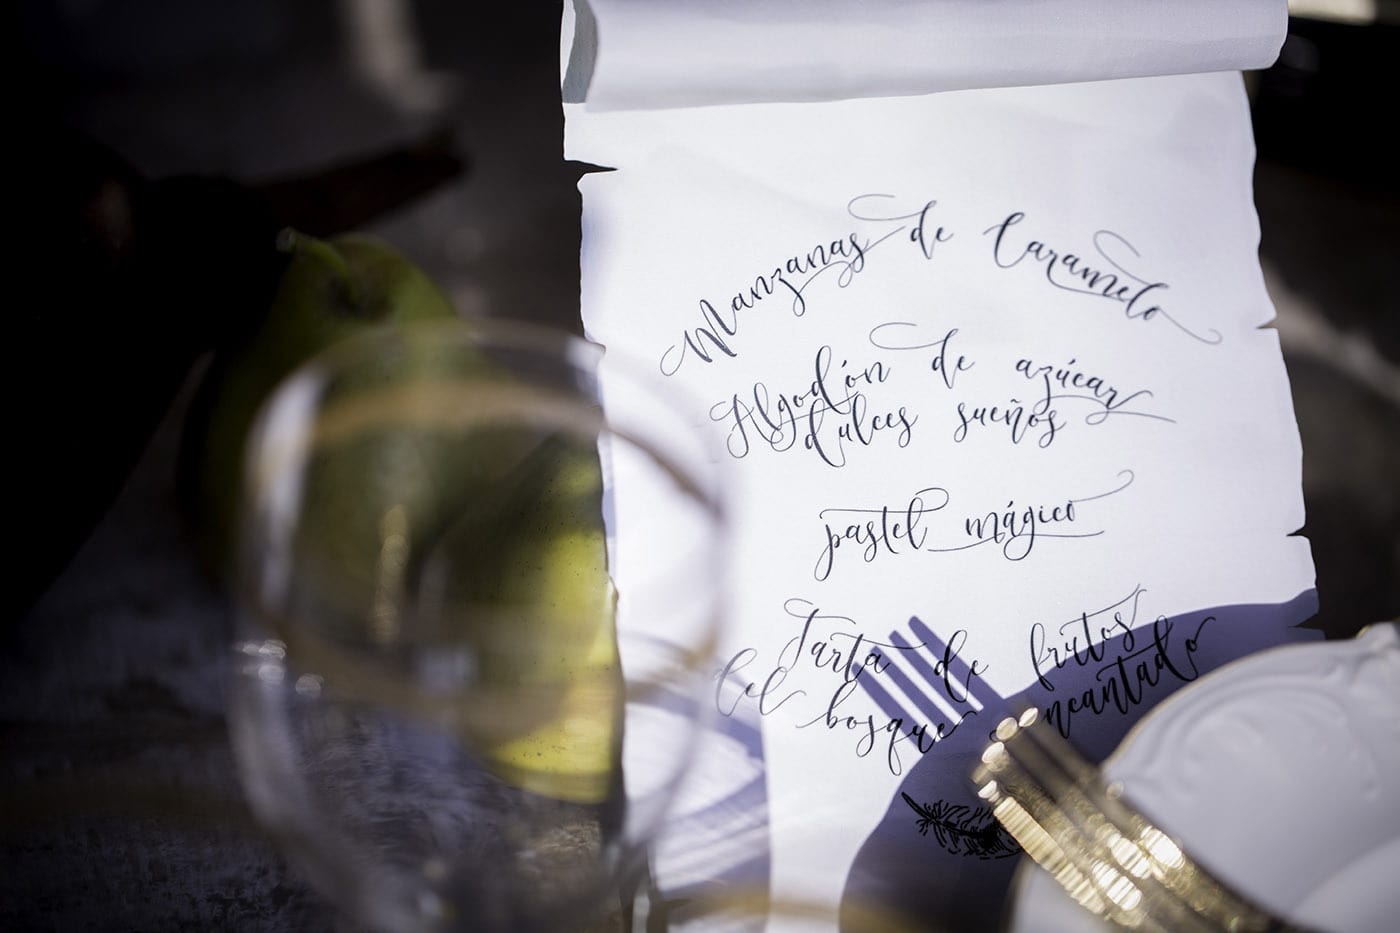 Manzanas de Caramelo
Algodón de azúcar
dulces sueños
pastel mágico
Tarta de frutos
del bosque encantado